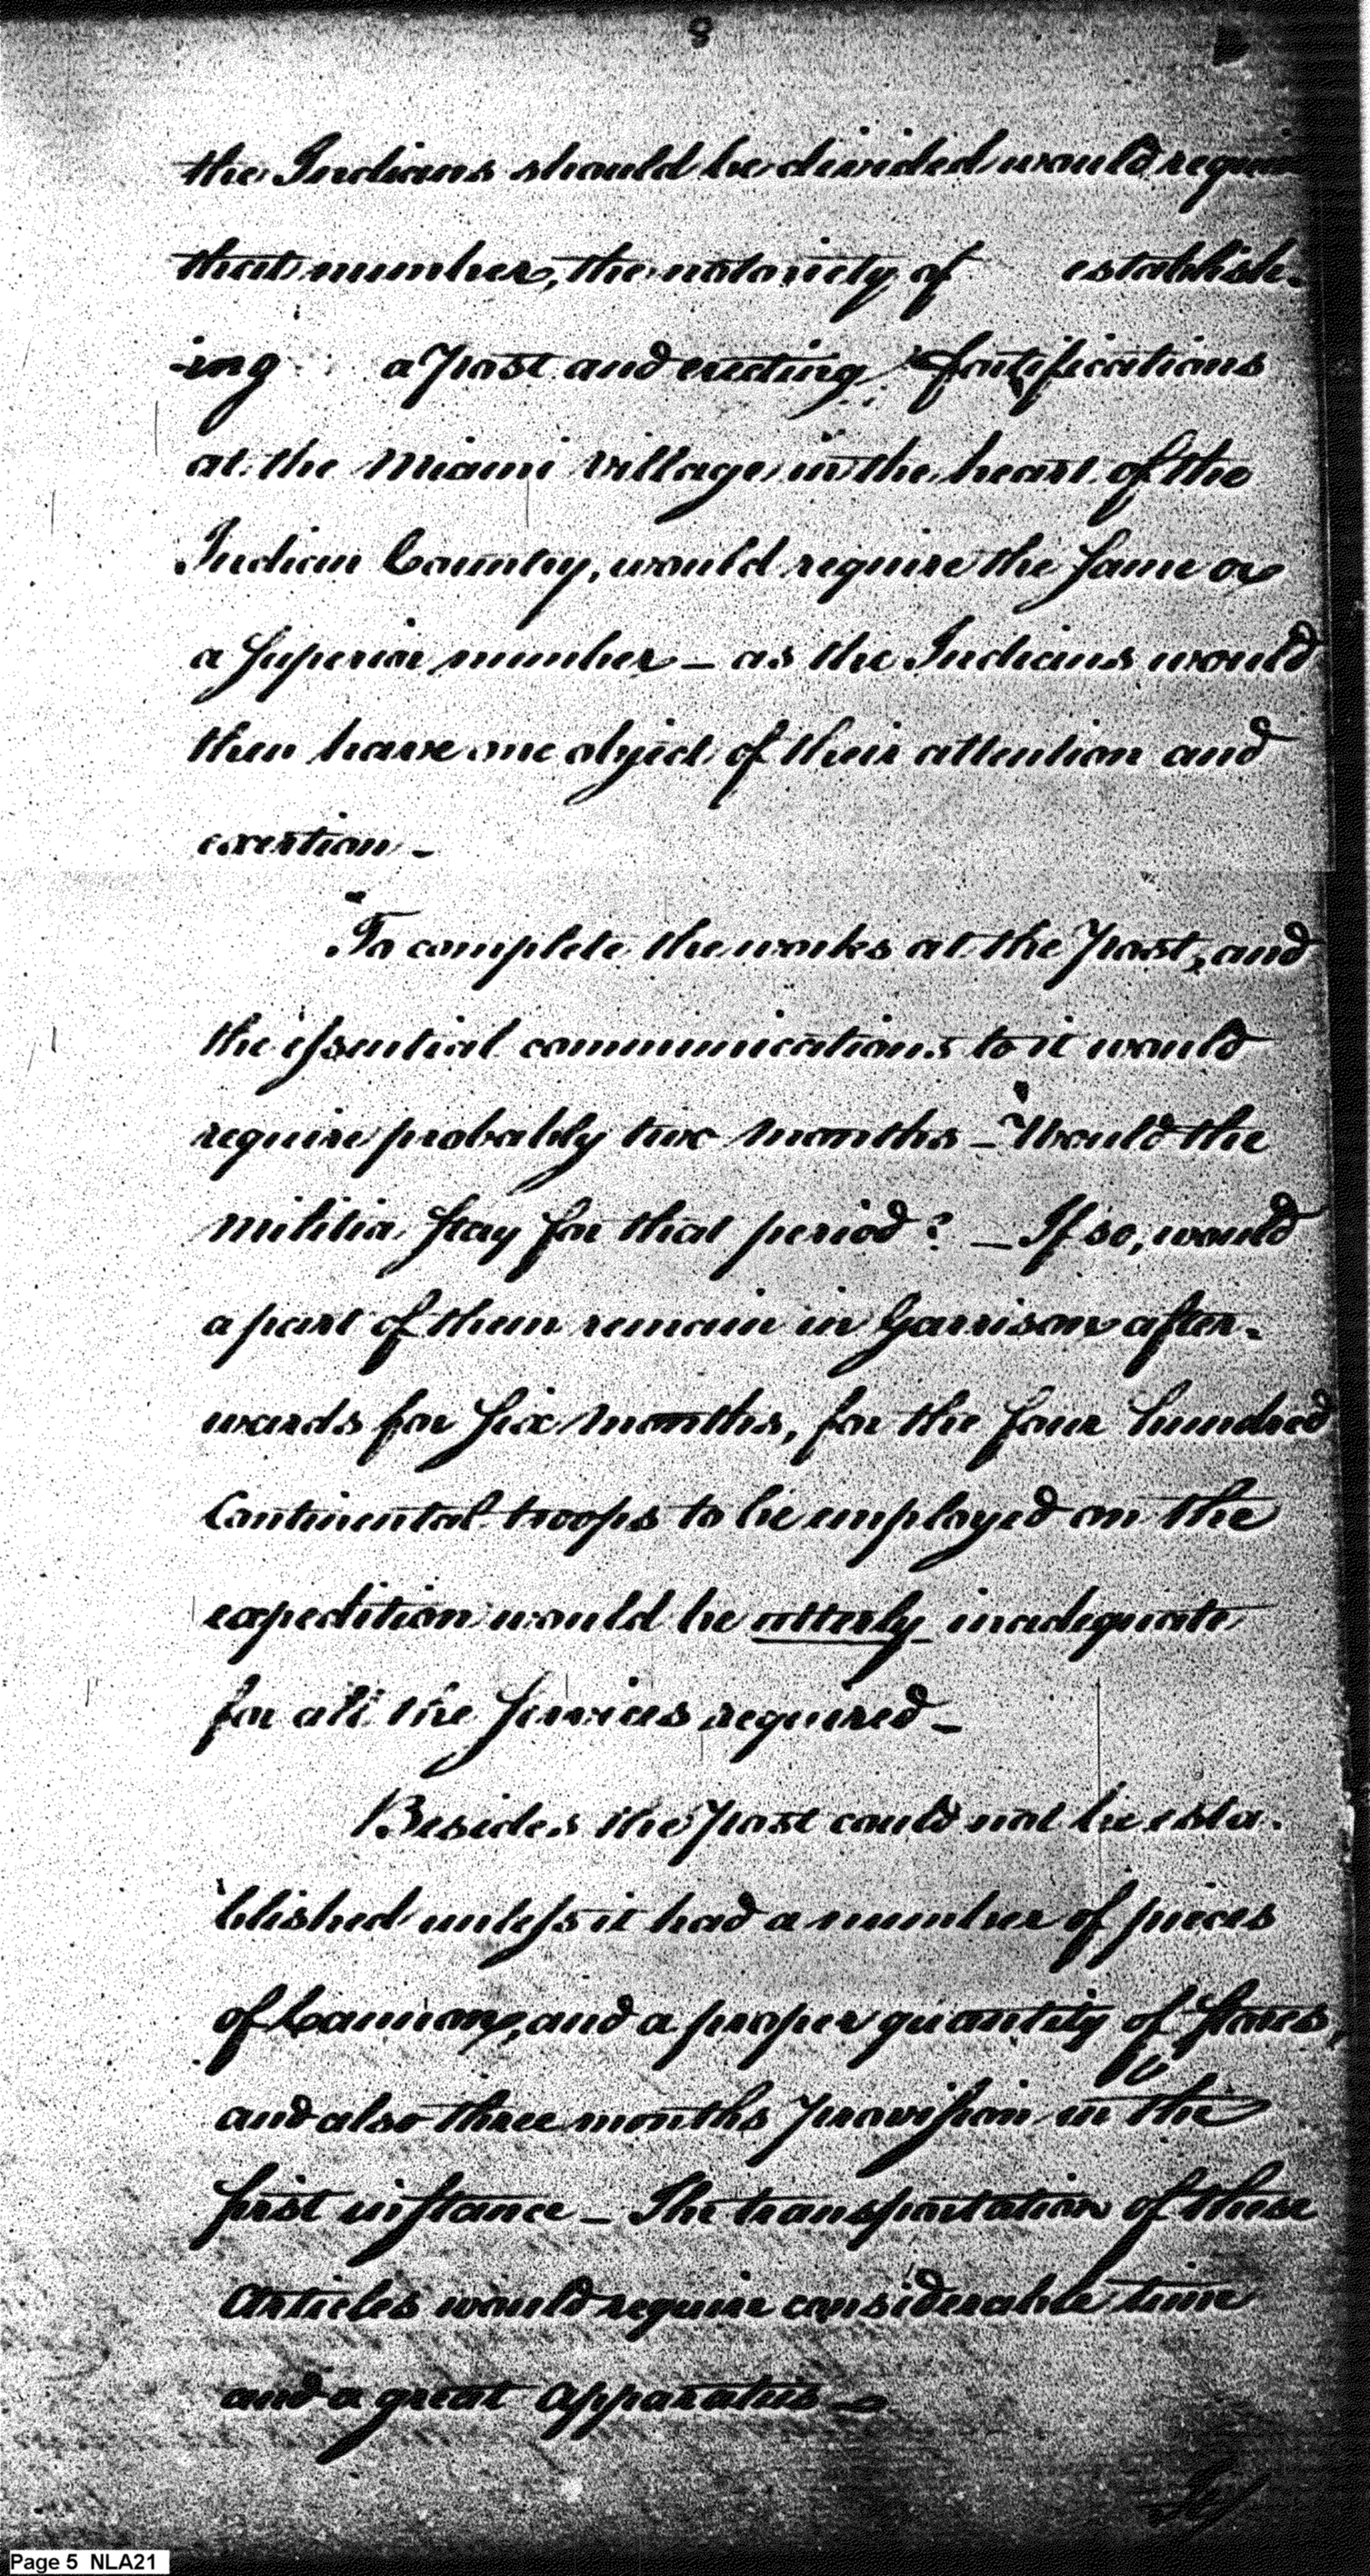 8
the Indians should be divided would require
that number, the notoriety of establish-
-ing a post and erecting fortifications
at the Miami village in the heart of the
Indian Country, would require the same or
a superior number — as the Indians would
then have one object of their attention and
exertion —
To complete the works at the Post, and
the essential communications to it would
require probably two months — Would the
militia stay for that period? — If so, would
a part of them remain in Garrison after-
wards for six months, for the four hundred
Continental troops to be employed on the
expedition would be utterly inadequate
for all the services required —
Besides the Post could not be esta-
blished unless it had a number of pieces
of Cannon, and a proper quantity of stores,
and also three months provision in the
first instance — The transportation of these
Articles would require considerable time
and a great apparatus —
Page 5 NLA21